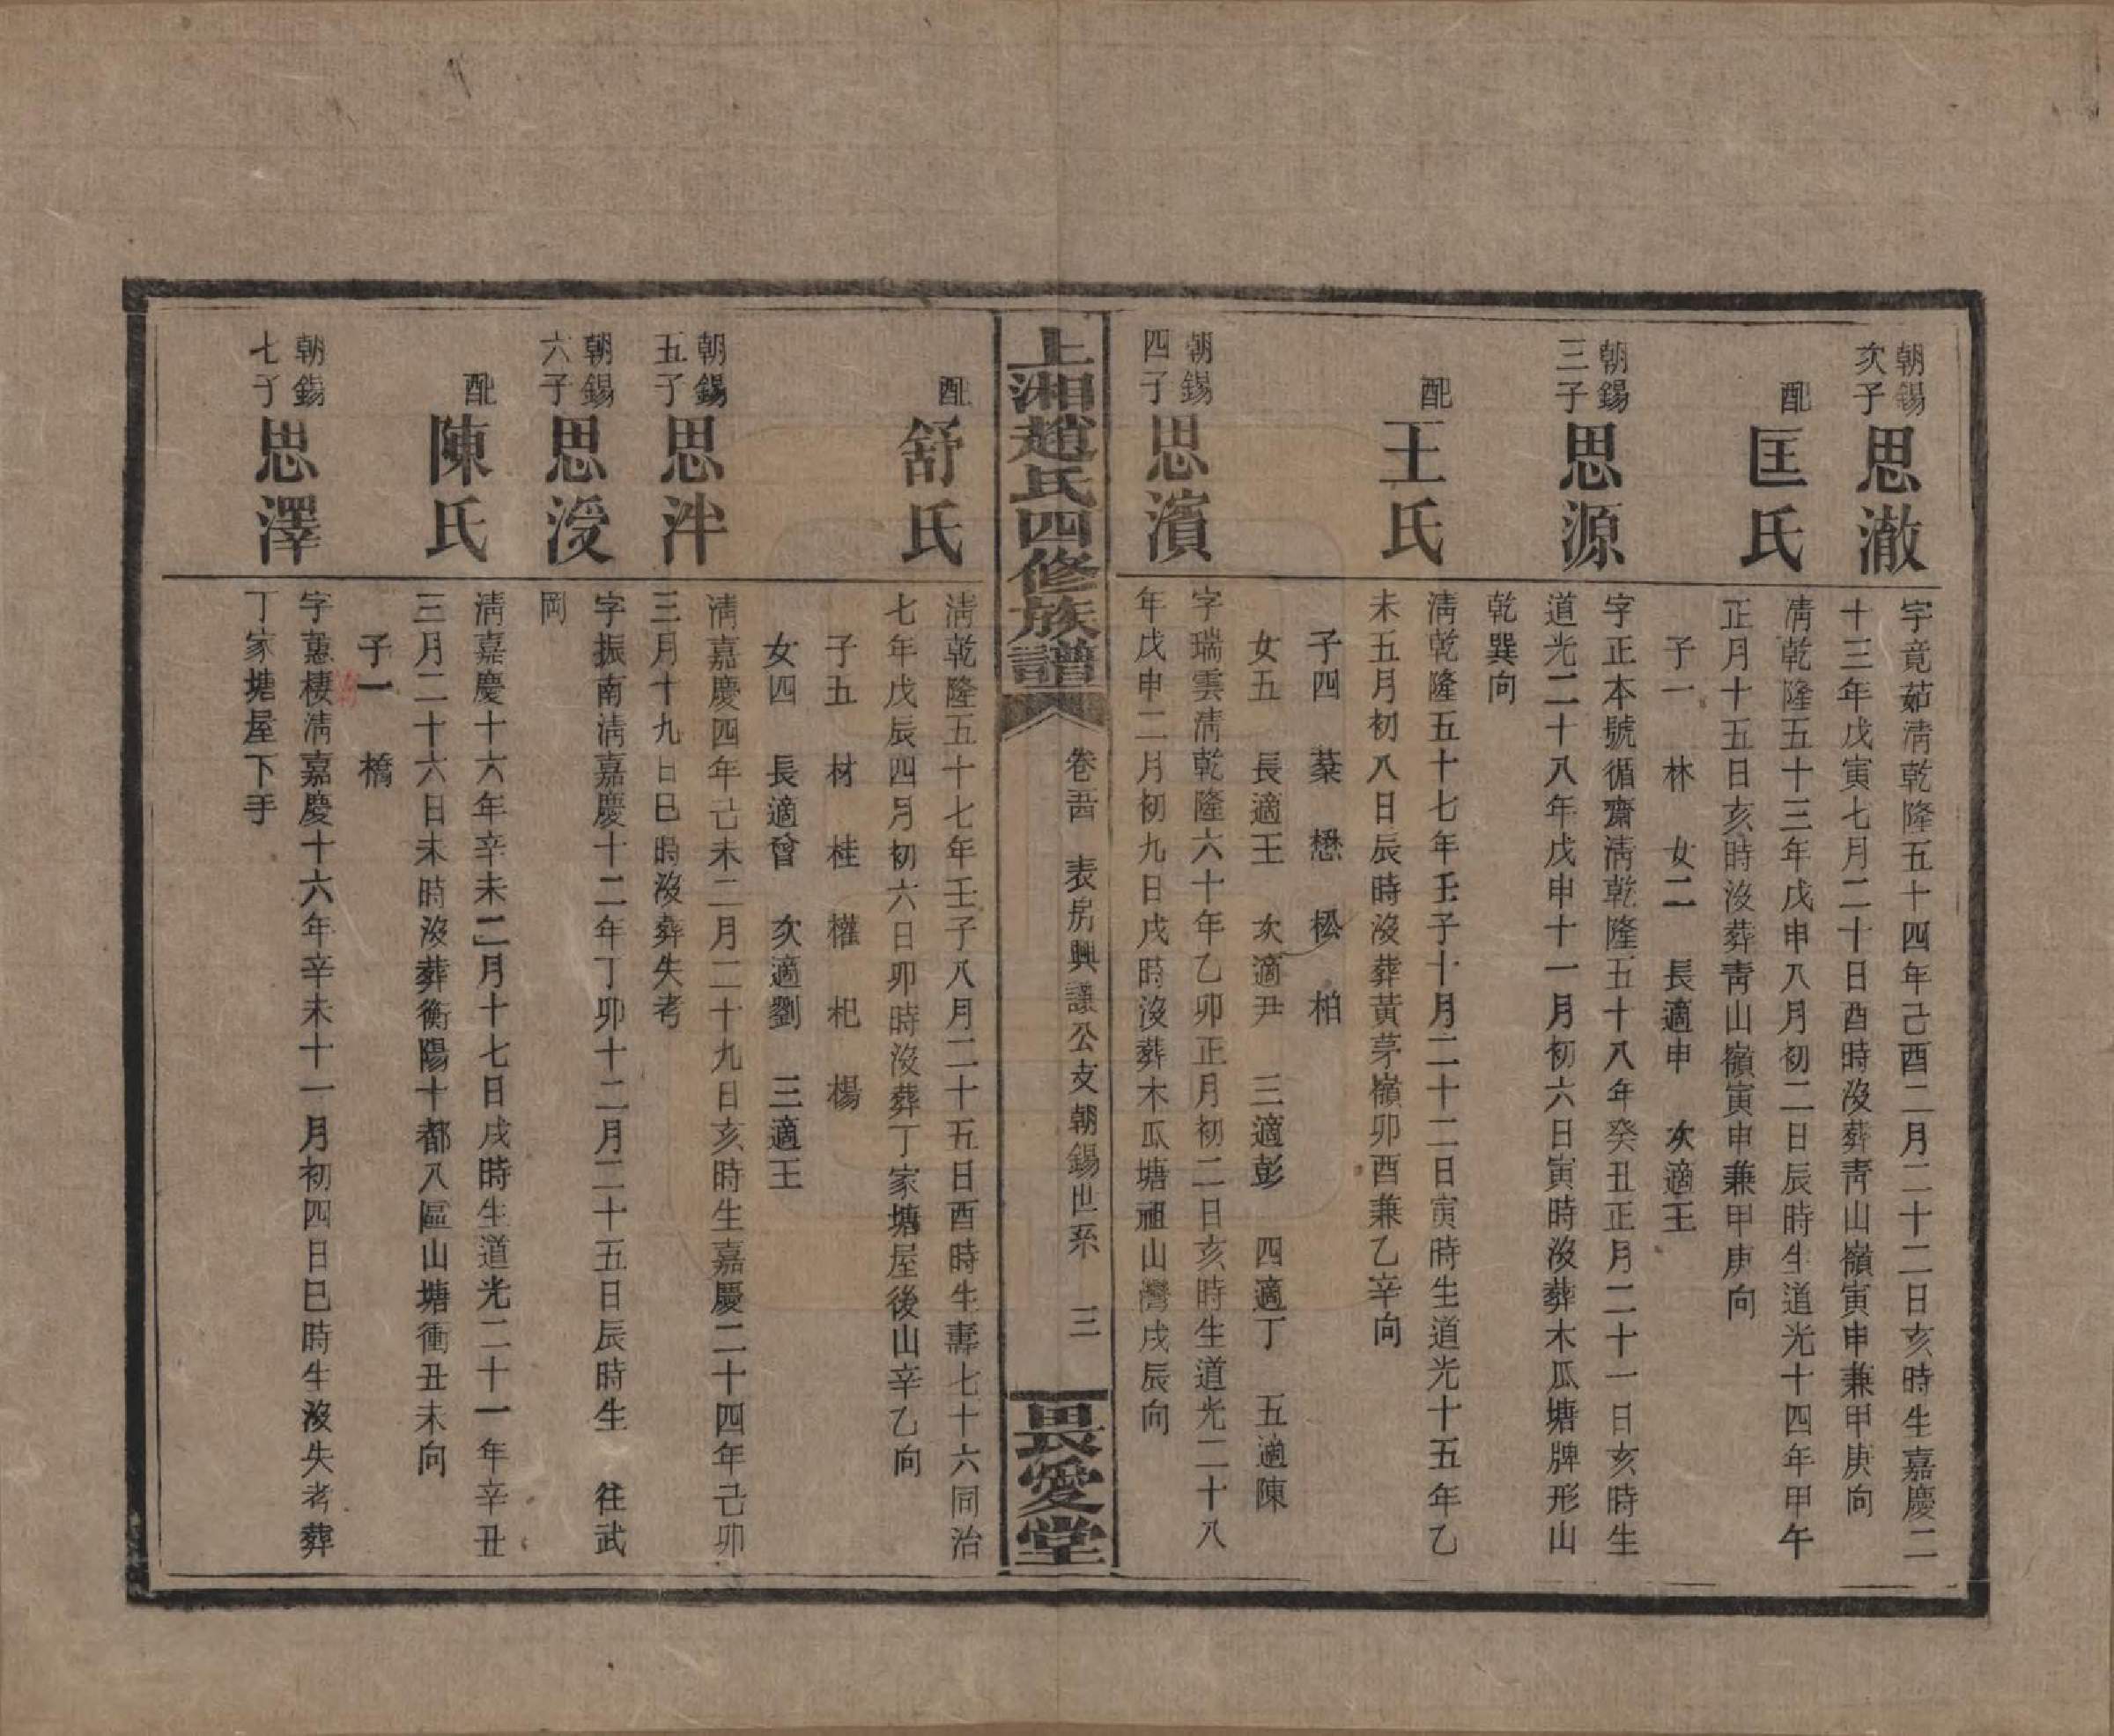 朝錫次子 思澈
字竟茹淸乾隆五十四年己酉二月二十二日亥時生嘉慶二
十三年戊寅七月二十日酉時沒葬靑山嶺寅申兼甲庚向
配 匡氏
淸乾隆五十三年戊申八月初二日辰時生道光十四年甲午
正月十五日亥時沒葬靑山嶺寅申兼甲庚向
子一 林 女二 長適申 次適王
朝錫三子 思源
字正本號循齋淸乾隆五十八年癸丑正月二十一日亥時生
道光二十八年戊申十一月初六日寅時沒葬木瓜塘牌形山
乾巽向
配 王氏
淸乾隆五十七年壬子十月二十二日寅時生道光十五年乙
未五月初八日辰時沒葬黃茅嶺卯酉兼乙辛向
子四 棻 懋 松 柏
女五 長適王 次適尹 三適彭 四適丁 五適陳
朝錫四子 思濱
字瑞雲淸乾隆六十年乙卯正月初二日亥時生道光二十八
年戊申二月初九日戌時沒葬木瓜塘祖山灣戌辰向
上湘趙氏四修族譜
卷
表房興讓公支朝錫世系 三
畏愛堂
配 舒氏
淸乾隆五十七年壬子八月二十五日酉時生壽七十六同治
七年戊辰四月初六日卯時沒葬丁家塘屋後山辛乙向
子五 材 桂 權 杞 楊
女四 長適曾 次適劉 三適王
朝錫五子 思泮
淸嘉慶四年己未二月二十九日亥時生嘉慶二十四年己卯
三月十九日巳時沒葬失考
朝錫六子 思浸
字振南淸嘉慶十二年丁卯十二月二十五日辰時生 往武
岡
配 陳氏
淸嘉慶十六年辛未二月十七日戌時生道光二十一年辛丑
三月二十六日未時沒葬衡陽十都八區山塘衝丑未向
子一 橋
朝錫七子 思澤
字蕙棲淸嘉慶十六年辛未十一月初四日巳時生沒失考葬
丁家塘屋下手